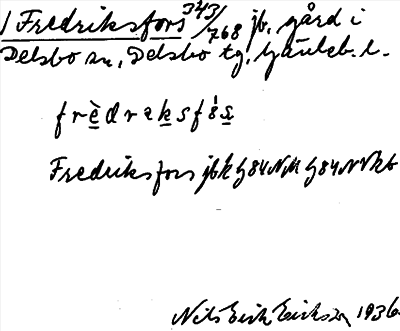 1 Fredriksfors 343/768 jb. gård i
Delsbo sn, Delsbo tg, Gävleb. l.
frèdraksfòs
Fredriksfors jbk G84NM G84NV kb
Nils Erik Eriksson 1936